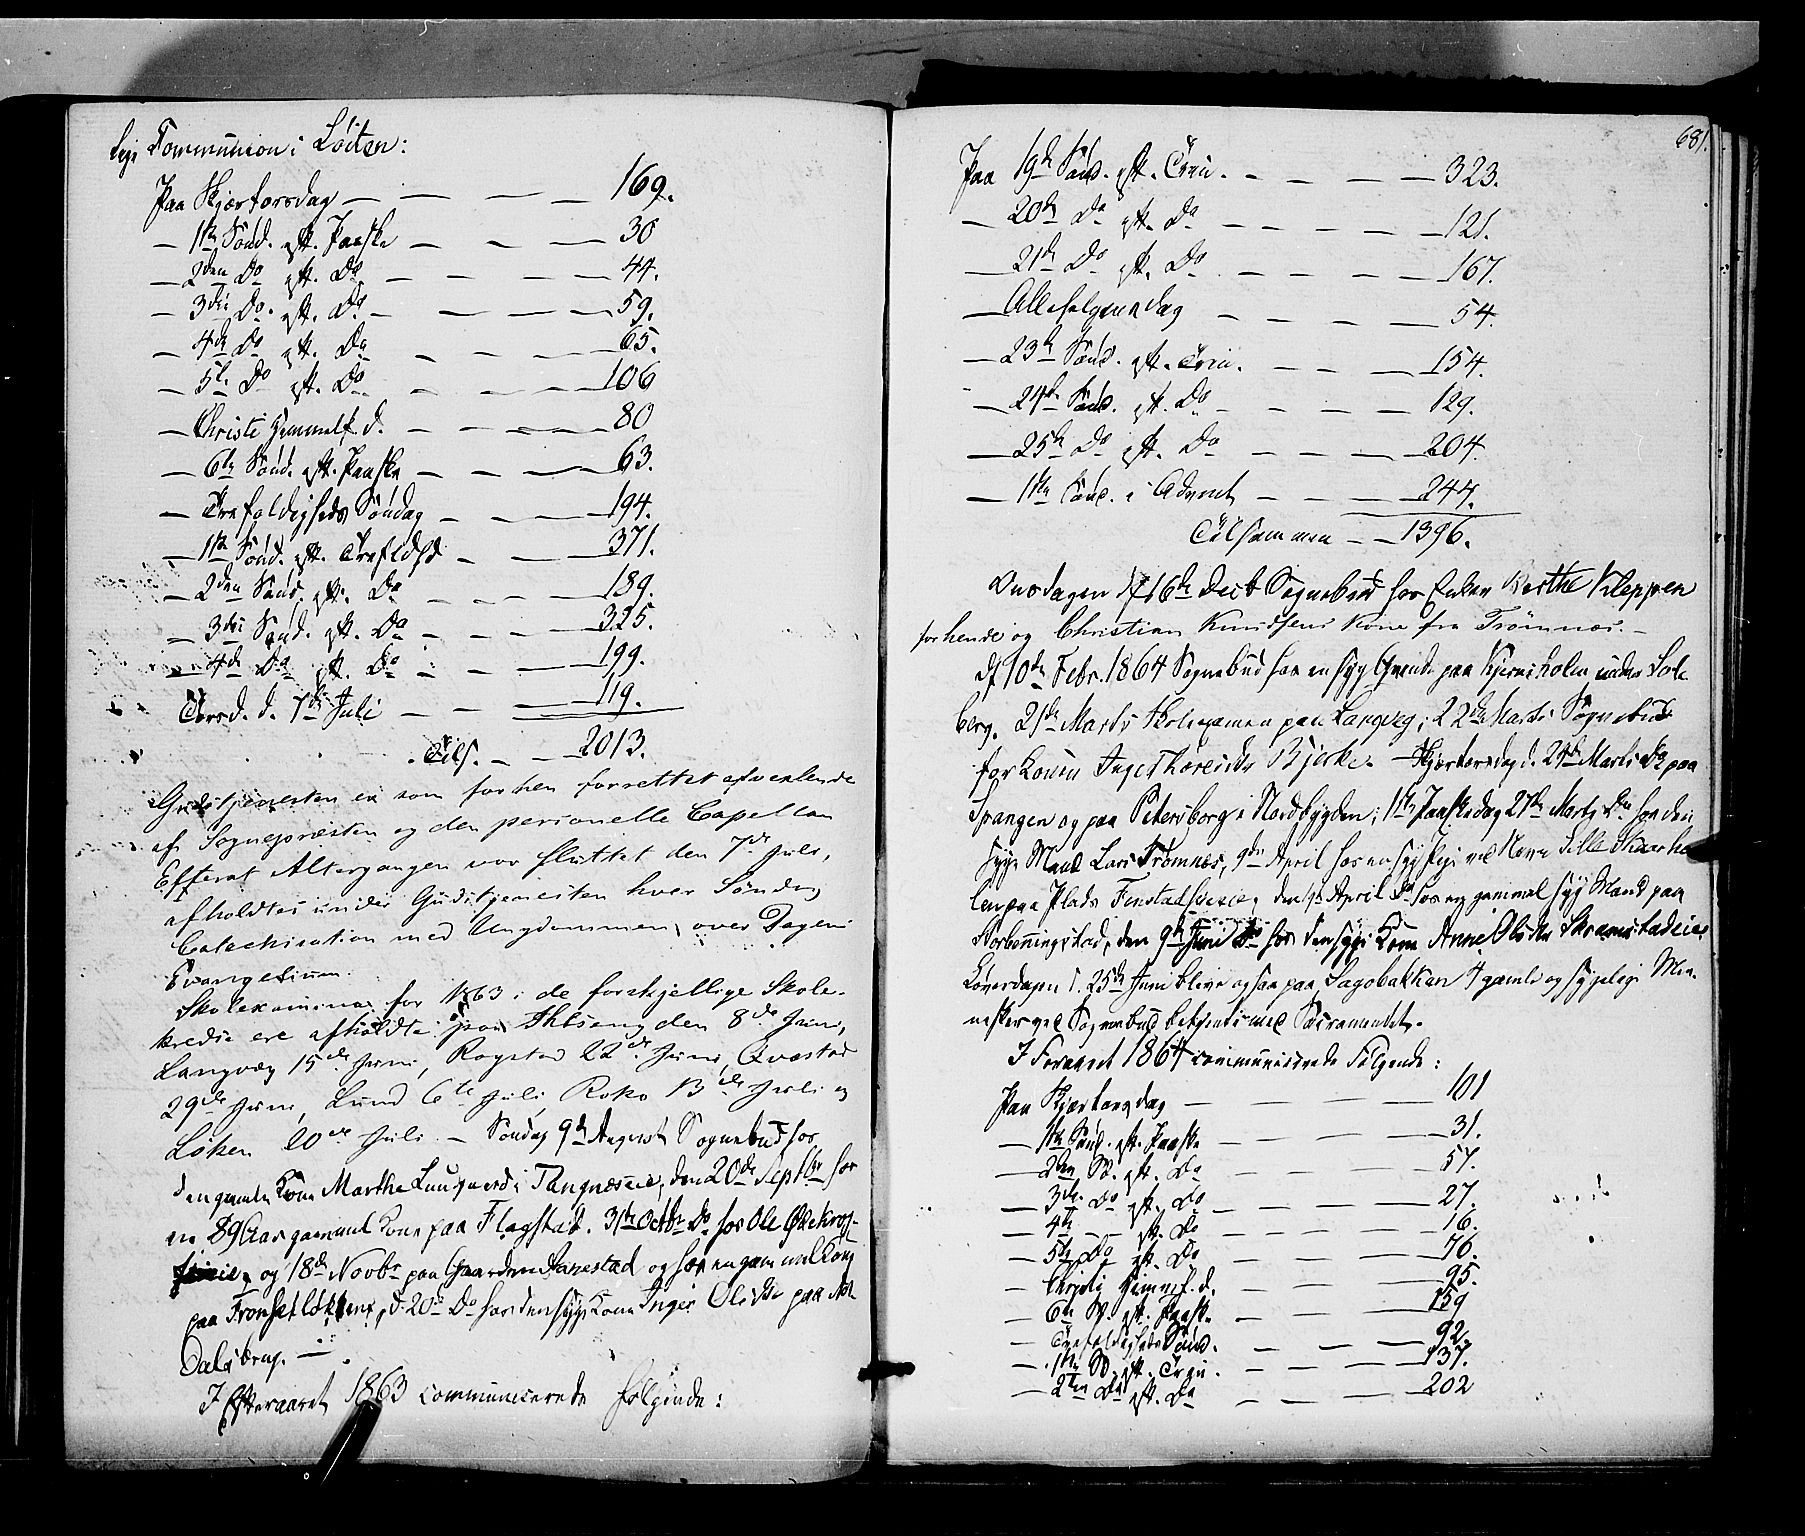 Communion i Löiten:
Paa Skjærtorsdag — — — — 169.
— 1ste Sönd. eft. Paaske — — — 30
— 2den Do eft. Do — — — 44.
— 3die Do. eft. Do — — — 59.
— 4de Do eft. Do — — — 65.
— 5te Do eft. Do — — — 106
— Christi Himmelf. d. — — — 80
— 6te Sönd. eft. Paaske — — — 63.
— Trefoldigheds Söndag — — — 194.
— 1ste Sönd. eft. Trefldhd — — — 371.
— 2den Sönd. eft. Do — — — 189.
— 3die Sönd. eft. Do — — — 325.
— 4de Do eft. Do — — — 199.
Torsd. d. 7de Juli — — — 119.
Tils. — — 2013.
Gudstjenesten er som forhen forrettet afvexlende
af Sognepræsten og den personelle Capellan
Efterat Altergangen var sluttet den 7de Juli,
afholdtes under Gudstjenesten hver Søndag
Catechisation med Ungdommen over Dagens
Evangelium.
Skolexamina for 1863 i de forskjellige Skole-
kredse ere afholdte paa den 8de Juni,
Langvæg 15de Juni, Rogstad 22de Juni, Qvæstad
29de Juni, Lund 6te Juli, Roko 13de Juli og
Løken 20de Juli. — Söndag 9de August Sognebud hos
den gamle Kone Marthe i, den 20de Septbr hos
en 89 Aar gammel Kone paa Flagstad. 31te Octbr Do hos Ole
og 18de Novbr paa Gaarden og hos en gammel Kone
paa d. 20de Do hos den syge Kone Inger Olsdr paa
Dalsbrug. —
I Efteraaret 1863 communicerede følgende:
681.
Paa 19de Sönd. eft. Trin. — — — 323.
— 20de Do eft. Do — — — 121.
— 21de Do eft. Do — — — 167.
— Allehelgensdag — — — 54.
— 23de Sönd. eft. Trin. — — — 154.
— 24de Sönd. eft. Do — — — 129.
— 25de Do eft. Do — — — 204.
— 1ste Sönd. i Advent — — — 244.
Tilsammen — — 1396.
Onsdagen d. 16de Decb Sognebud hos Enken Berthe Kleppen
for hende og Christian Knudsens Kone fra Trømnes. —
D. 10de Febr. 1864 Sognebud hos en syg Qvinde paa under Sol-
berg. 21de Marts Skolexamen paa Langvæg; 22de Marts Sognebud
for Konen Inger Bjerke. — Skjærtorsdag d. 24de Marts Do paa
Spangen og paa Petersborg i Nordbygden; 1ste Paaskedag 27de Marts Do hos den
syge Mand Lars Trømnes, 9de April hos en ved Navn Sille
paa Plads den April Do hos en gammel syg Mand paa
den 9de Juni Do hos den syge Kone Anne Olsdtr
Løverdagen d. 25de Juni bleve ogsaa paa Sagobakken 4 gamle og sygelige Men-
nesker ved Sognebud betjente med Sacramentet.
I Foraaret 1864 communicerede Følgende:
Paa Skjærtorsdag — — — 101
— 1ste Sönd. eft. Paaske — — — 31.
— 2den S. eft. Do — — — 57.
— 3die Do eft. Do — — — 27.
— 4de — eft. Do — — — 16.
— 5te Do eft. Do — — — 76.
— Christi Himmelf. d. — — — 95.
— 6te S. eft. Paaske — — — 159
— Trefoldigheds Sönd. — — — 92.
— 1ste S. eft. Trin. — — — 137.
— 2den Do eft. Do — — — 202